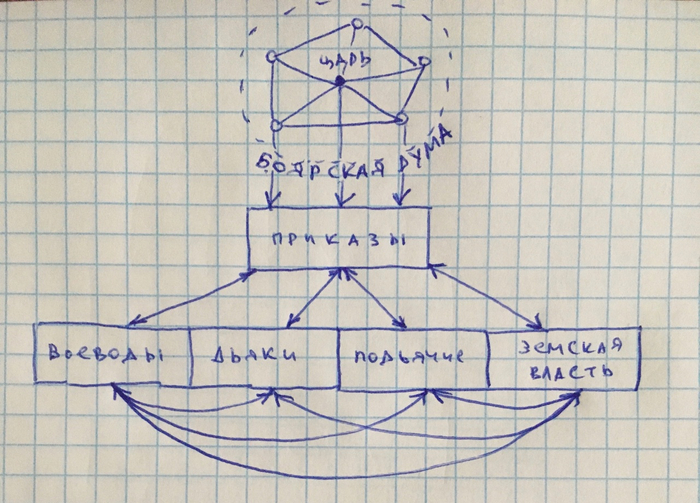 ЦАРЬ
БОЯРСКАЯ ДУМА
ПРИКАЗЫ
ВОЕВОДЫ
ДЬЯКИ
ПОДЬЯЧИЕ
ЗЕМСКАЯ
ВЛАСТЬ